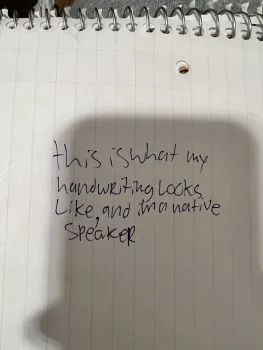 this is what my
handwriting Looks
Like, and im a native
speaker